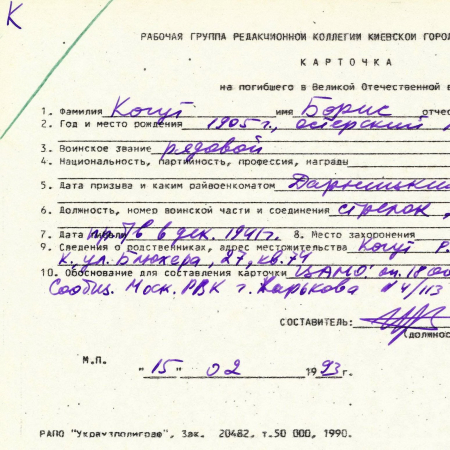 К
РАБОЧАЯ ГРУППА РЕДАКЦИОННОЙ КОЛЛЕГИИ КИЕВСКОЙ ГОРО
КАРТОЧКА
на погибшего в Великой Отечественной в
1. Фамилия Когут имя Борис отчес
2. Год и место рождения 1905 г., остёрский
3. Воинское звание рядовой
4. Национальность, партийность, профессия, награды
5. Дата призыва и каким райвоенкоматом Дарницким
6. Должность, номер воинской части и соединения стрелок,
7. Дата гибели пр/в в дек. 1941 г. 8. Место захоронения
9. Сведения о родственниках, адрес местожительства Когут Р.
к. ул. Блюхера, 27, кв. 74
10. Обоснование для составления карточки ЦАМО: оп. 18 00
Сообщ. Моск. РВК г. Харькова № 4/113
СОСТАВИТЕЛЬ:
(должнос
М.П.
"15" 02 1993 г.
РАПО "Укрвузполиграф", Зак. 20482, т.50 000, 1990.